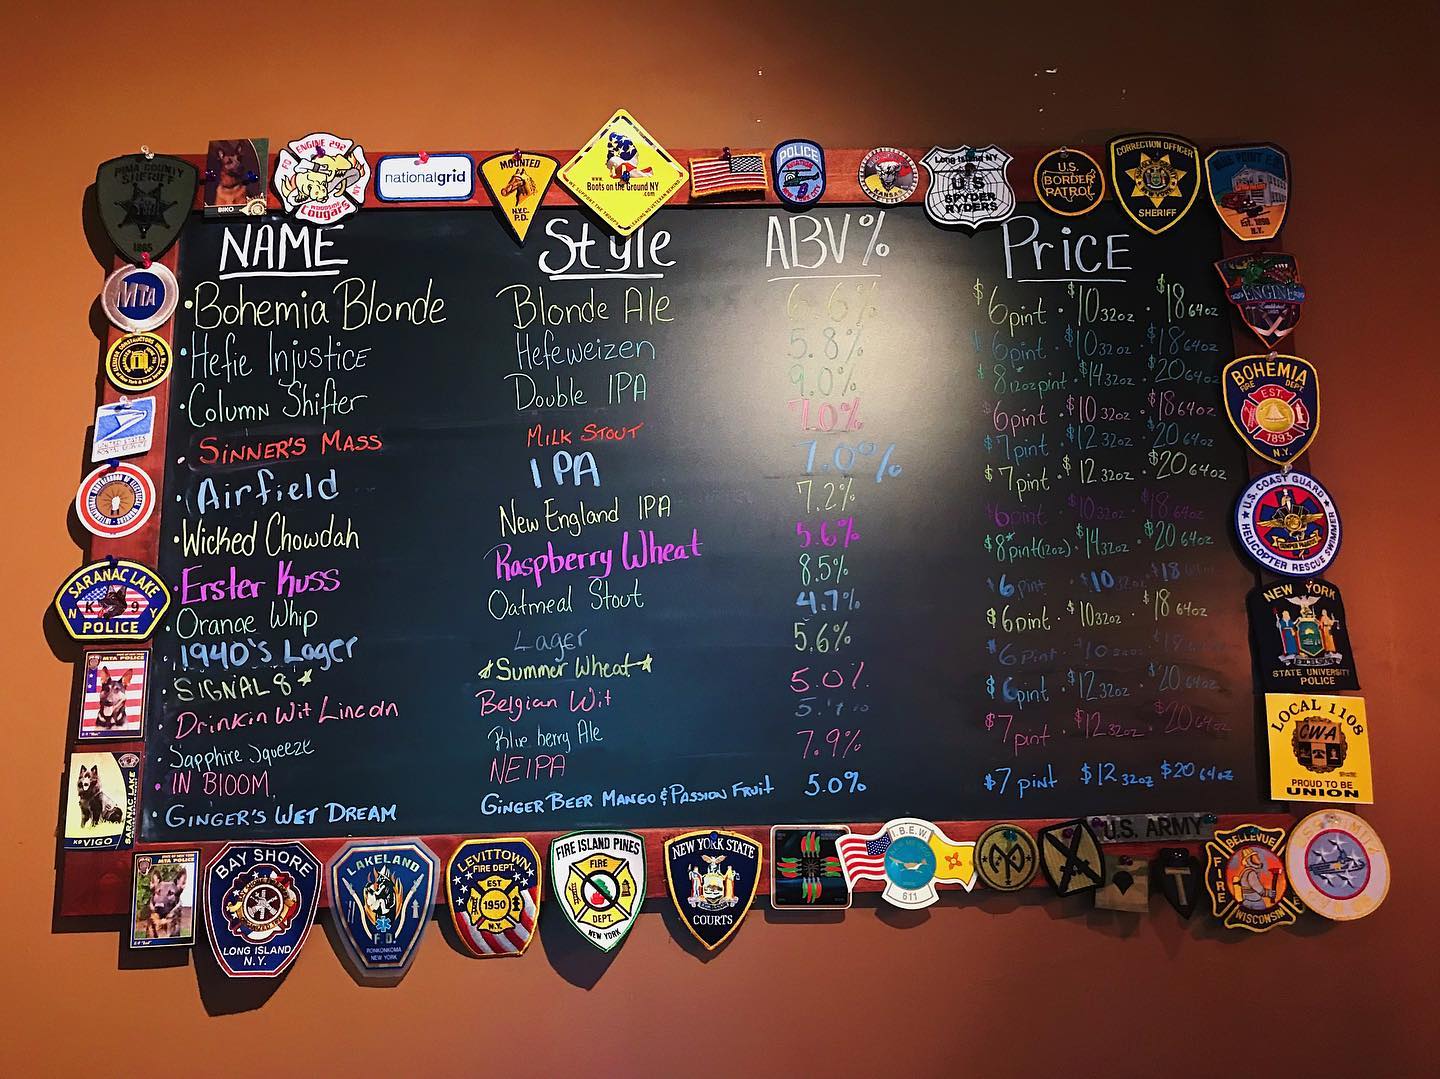 PIMA COUNTY
SHERIFF
1865
BIKO
ENGINE 292
FD NY
Cougars
nationalgrid
MOUNTED
N.Y.C.
P.D.
www.
Boots on the Ground NY
.com
POLICE
AVIATION
KANSAS
Long Island NY
U S
SPYDER
RYDERS
U.S.
BORDER
PATROL
CORRECTION OFFICER
SHERIFF
EST. 1890
N.Y.
MTA
ENGINE
BOHEMIA
FIRE DEPT.
EST.
1893
N.Y.
U.S. COAST GUARD
HELICOPTER RESCUE SWIMMER
SARANAC LAKE
N K 9 Y
POLICE
NEW YORK
STATE UNIVERSITY
POLICE
MTA POLICE
LOCAL 1108
CWA
PROUD TO BE
UNION
SARANAC LAKE
K9 VIGO
NAME Style ABV% PRICE
•Bohemia Blonde Blonde Ale 6.6% $6pint • $10 32oz • $18 64oz
•Hefie Injustice Hefeweizen 5.8% $6pint • $10 32oz • $18 64oz
•Column Shifter Double IPA 9.0% $8 12oz pint • $14 32oz • $20 64oz
•SINNER'S MASS MILK STOUT 7.0% $6pint • $10 32oz • $18 64oz
•Airfield IPA 7.0% $7pint • $12 32oz • $20 64oz
•Wicked Chowdah New England IPA 7.2% $7pint • $12 32oz • $20 64oz
•Erster Kuss Raspberry Wheat 5.6% $6pint • $10 32oz • $18 64oz
•Orange Whip Oatmeal Stout 8.5% $8* pint(12oz) • $14 32oz • $20 64oz
•1940's Lager Lager 4.7% $6 pint • $10 32oz • $18
•SIGNAL 8 Summer Wheat 5.6% $6pint • $10 32oz • $18 64oz
•Drinkin Wit Lincoln Belgian Wit 5.0% $6 Pint • $10 32oz
•Sapphire Squeeze Blueberry Ale $6pint • $12 32oz • $20 64oz
•IN BLOOM NEIPA 7.9% $7pint • $12 32oz • $20 64oz
•GINGER'S WET DREAM GINGER BEER MANGO & PASSION FRUIT 5.0% $7 pint $12 32oz $20 64oz
BAY SHORE
LONG ISLAND
N.Y.
LAKELAND
F.D.
RONKONKOMA
NEW YORK
LEVITTOWN
FIRE DEPT.
EST
1950
N.Y.
FIRE ISLAND PINES
FIRE
DEPT.
NEW YORK
NEW YORK STATE
COURTS
I.B.E.W.
611
U.S. ARMY
BELLEVUE
FIRE
WISCONSIN